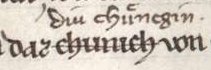 Diu chuͤnegin.
daz chunich von